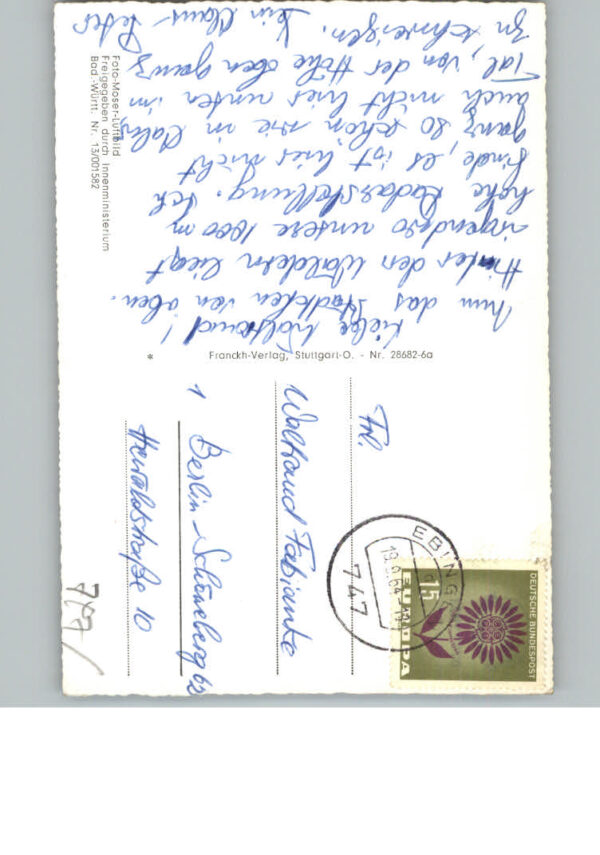 Liebe Waltraud!
Nun das Städtchen von oben.
Hinter den Wäldern liegt
irgendwo unsere 1000 m
hohe Radarstellung. Ich
finde, es ist hier nicht
ganz so schön wie in Calw,
auch nicht hier unten im
Tal, von der Höhe oben ganz
zu schweigen. Dein Claus-Peter
Foto-Moser-Luftbild
Freigegeben durch Innenministerium
Bad.-Württ. Nr. 13/001582
* Franckh-Verlag, Stuttgart-O. - Nr. 28682-6a
Frl.
Waltraud Fabianke
1 Berlin-Schöneberg 62
Hewaldstraße 10
EBING
747
DEUTSCHE BUNDESPOST
15
EUROPA